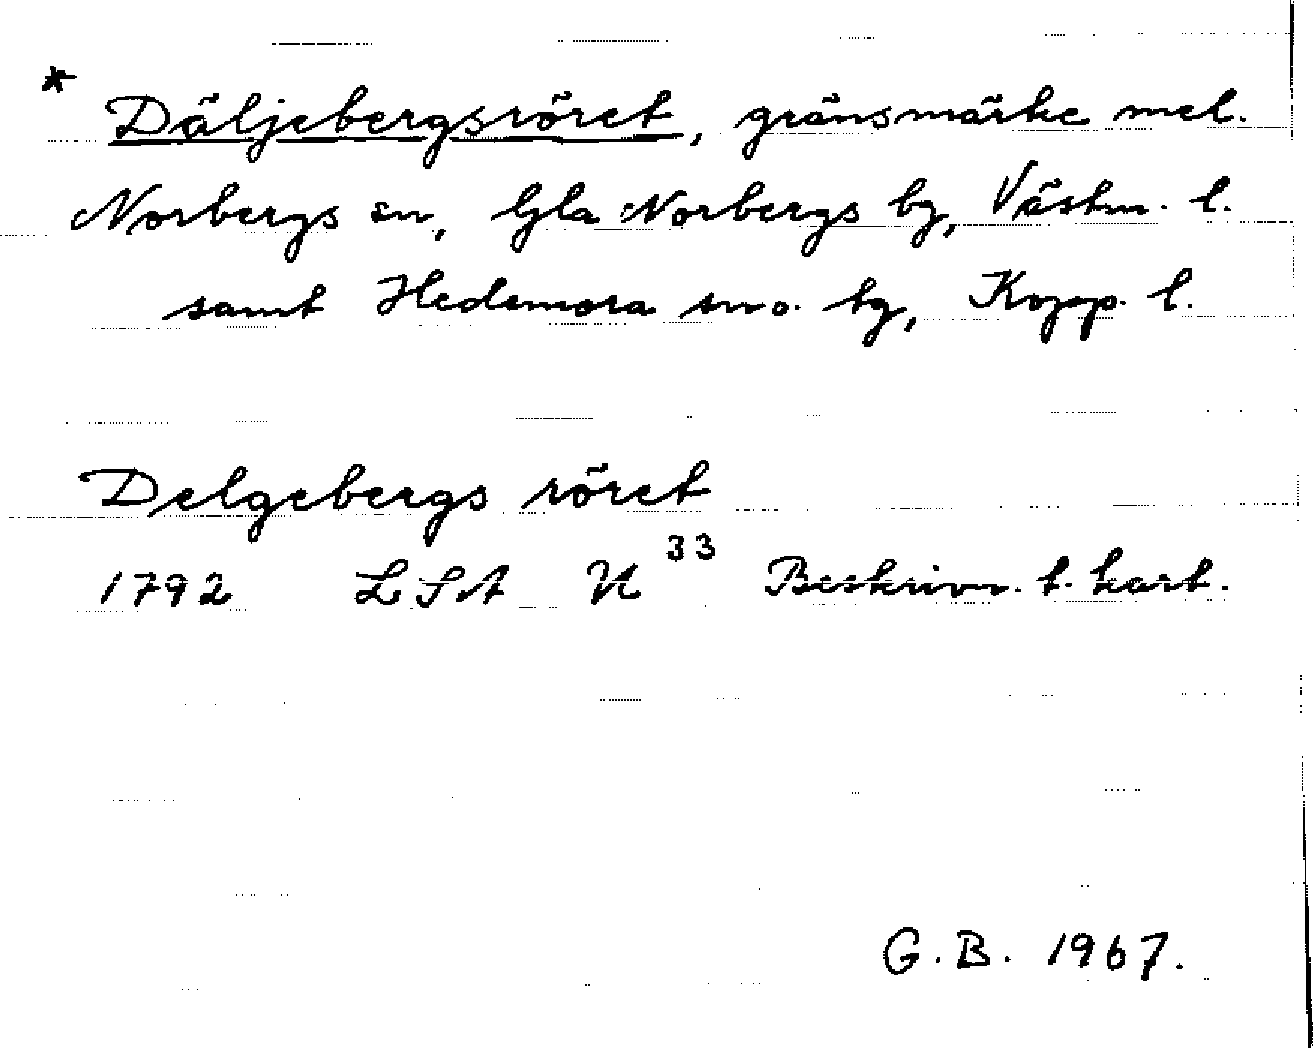 * Däljebergsröret, gränsmärke mel.
Norbergs sn, Gla Norbergs by, Västm. l.
samt Hedemora sn o. by, Kopp. l.
Delgebergs röret
1792 LSA U 33 Beskrivn. t. kart.
G.B. 1967.